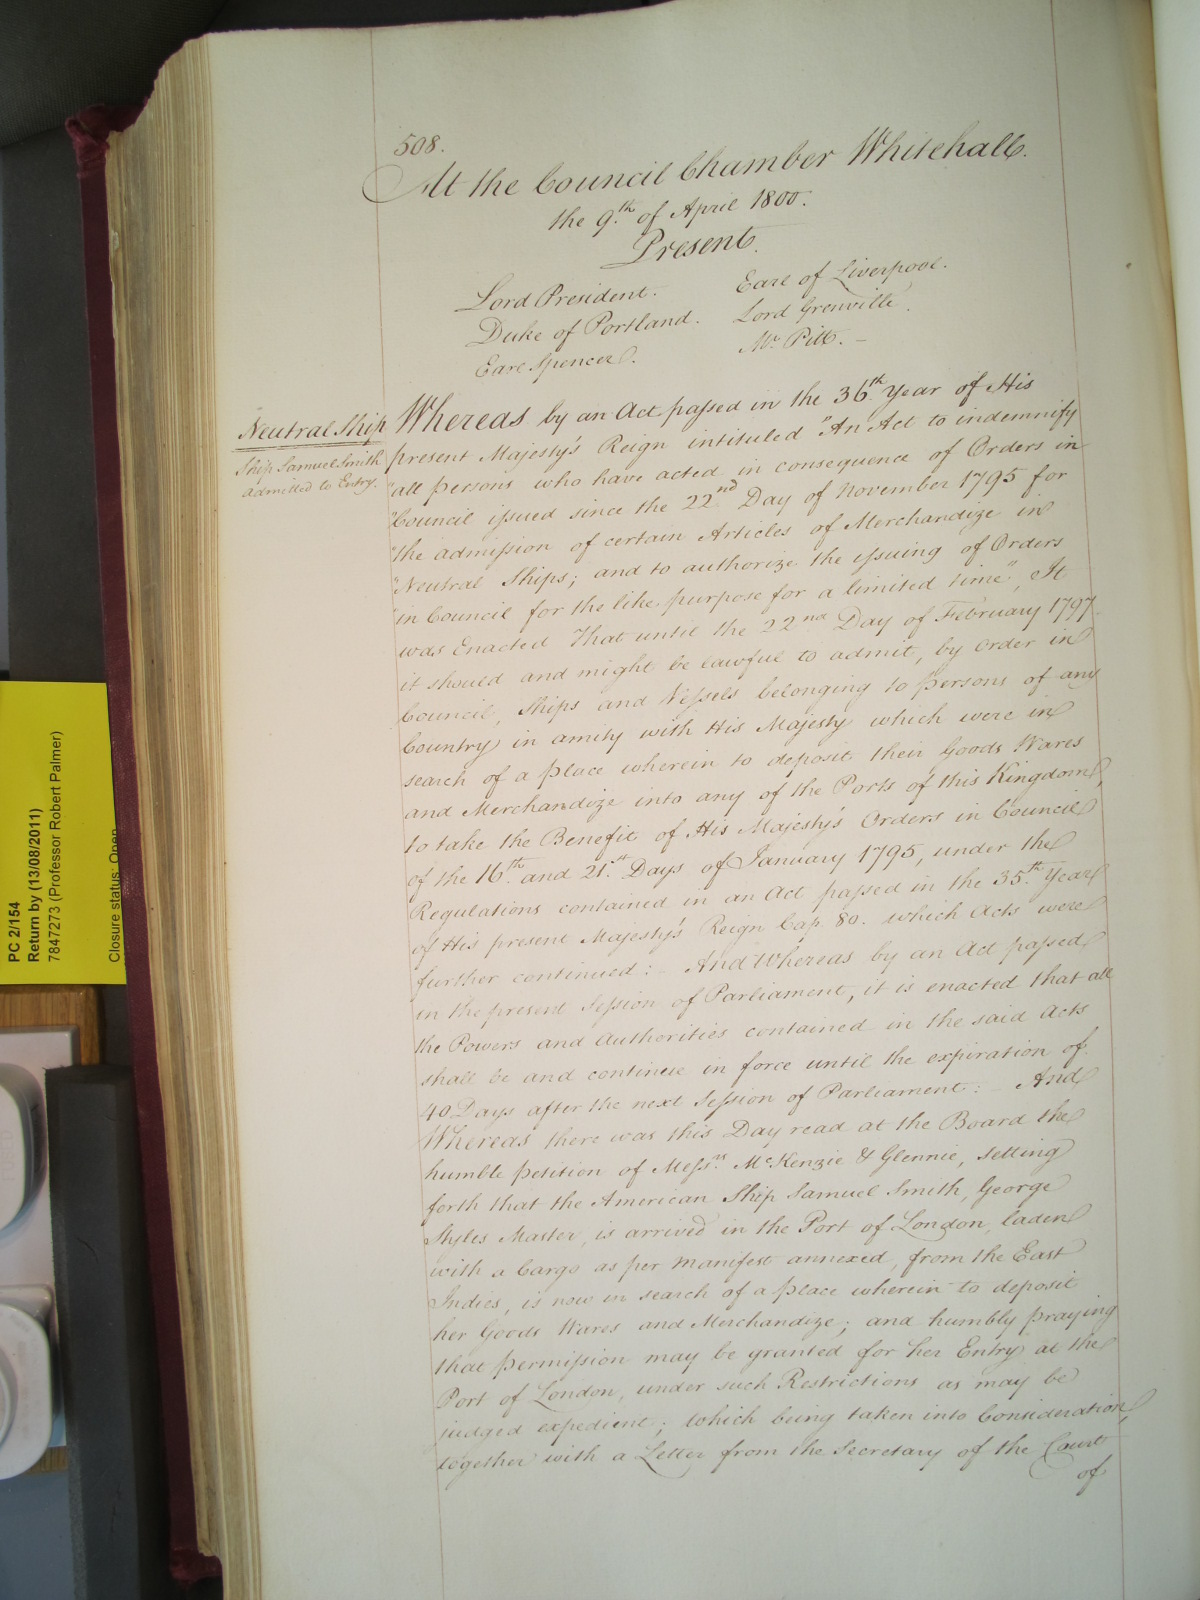 508.
At the Council Chamber Whitehall.
the 9.th of April 1800.
Present.
Lord President.
Duke of Portland.
Earl Spencer.
Earl of Liverpool.
Lord Grenville.
Mr. Pitt. –
Neutral Ship
Ship Samuel Smith
admitted to Entry.
Whereas by an Act passed in the 36.th Year of His
present Majesty's Reign intituled "An Act to indemnify
"all persons who have acted in consequence of Orders in
"Council issued since the 22nd Day of November 1795 for
"the admission of certain Articles of Merchandize in
"Neutral Ships; and to authorize the issuing of Orders
"in Council for the like purpose for a limited time", It
was Enacted That until the 22nd Day of February 1797
it should and might be lawful to admit, by Order in
Council, Ships and Vessels belonging to persons of any
Country in amity with His Majesty which were in
search of a place wherein to deposit their Goods Wares
and Merchandize into any of the Ports of this Kingdom,
to take the Benefit of His Majesty's Orders in Council
of the 16.th and 21.st Days of January 1795, under the
Regulations contained in an Act passed in the 35.th Year
of His present Majesty's Reign Cap. 80. which Acts were
further continued: – And Whereas by an Act passed
in the present Session of Parliament, it is enacted that all
the Powers and Authorities contained in the said Acts
shall be and continue in force until the expiration of
40 Days after the next Session of Parliament: – And
Whereas there was this Day read at the Board the
humble petition of Mess.rs McKenzie & Glennie, setting
forth that the American Ship Samuel Smith, George
Styles Master, is arrived in the Port of London, laden
with a Cargo as per manifest annexed, from the East
Indies, is now in search of a place wherein to deposit
her Goods Wares and Merchandize; and humbly praying
that permission may be granted for her Entry at the
Port of London, under such Restrictions as may be
judged expedient; which being taken into Consideration,
together with a Letter from the Secretary of the Court
of
PC 2/154
Return by (13/08/2011)
7847273 (Professor Robert Palmer)
Closure status: Open